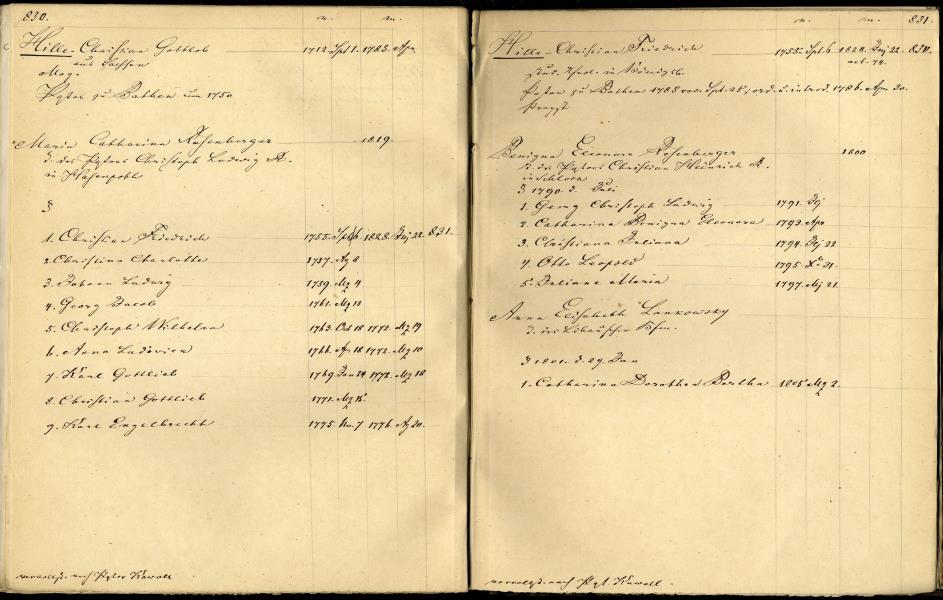 830. n. m.
Hille - Christian Gottlob 1712 Spt 1. 1783. Apr
aus Sachsen
Mag.
Pastor zu Bathen um 1750
Maria Catharina Rosenberger 1819.
T. des Pastors Christoph Ludwig R.
in Hasenpoth
§
1. Christian Friedrich 1755. Spt 6. 1828. 22. 831.
2. Christina Charlotte 1757. Ag 8
3. Johann Ludwig 1759. Mz 4
4. Georg Jacob 1761. Mz 13
5. Christoph Wilhelm 1763. Oct 18 1772. Mz 19
6. Anna Ludovica 1766. Ap 18 1772. Mz 10
7. Karl Gottlieb 1769 Jan 24 1772. Mz 18
8. Christian Gottlieb 1771. Mz 15
9. Karl Engelbrecht 1775. No. 7 1776. Ag 20.
nach Pastor Kawall
n. m. 831.
Hille - Christian Friedrich 1755. Spt. 6 1828. 22. 830.
aet. 74.
stud. theol. in Königsb.
Pastor zu Bathen 1785 voc. Spt. 25; ord. u. introd. 1786. Apr 30.
Propst
Benigna Eleonora Rosenberger 1800
T. des Pastors Christian Heinrich R.
§ 1790. d. Juli
1. Georg Christoph Ludwig 1791.
2. Catharina Benigna Eleonora 1792 Apr
3. Christiana Juliana 1794. 22
4. Otto Leopold 1795. Xbr 31.
5. Juliane Maria 1797. Mj 21.
Anna Elisabeth Lankowsky
T. des Libauschen
§ 1801. d. 29. Jan
1. Catharina Dorothea Bertha 1805 Mz 2.
nach Past. Kawall.